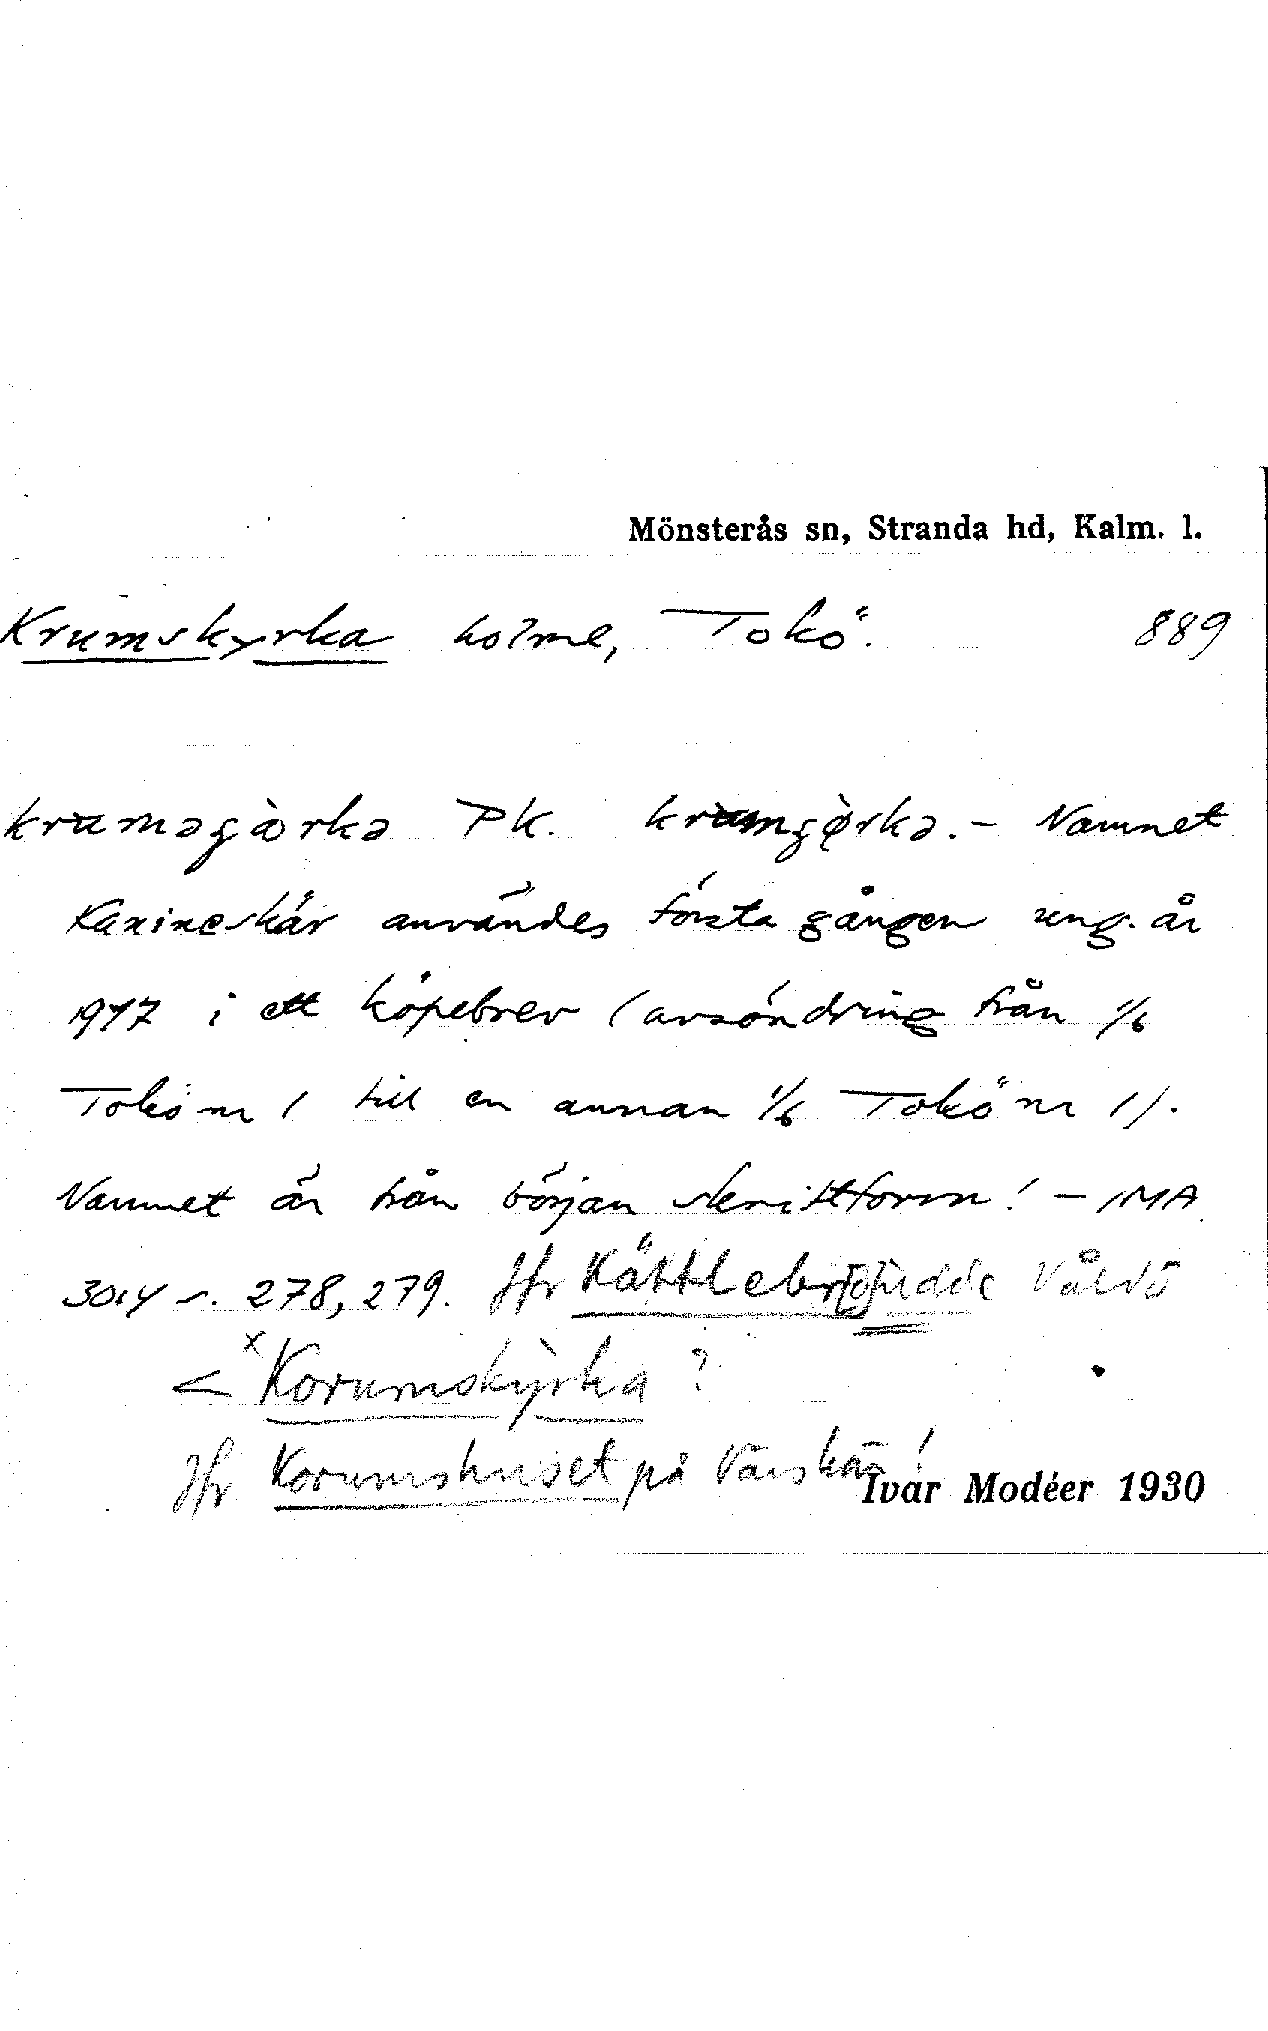 Mönsterås sn, Stranda hd, Kalm. l.
Krumskyrka holme, Tokö. 889
Pk. – Namnet
Kanineskär användes första gången ung. år
1917 i ett köpebrev (avsöndring från 1/6
Tokö nr 1 till en annan 1/6 Tokö nr 1).
Namnet är från början skriftform! – IMA
s. 278, 279. Jfr Vålö
< ˣKorumskyrka ?
Jfr Korumshuset på Vårskär!
Ivar Modéer 1930